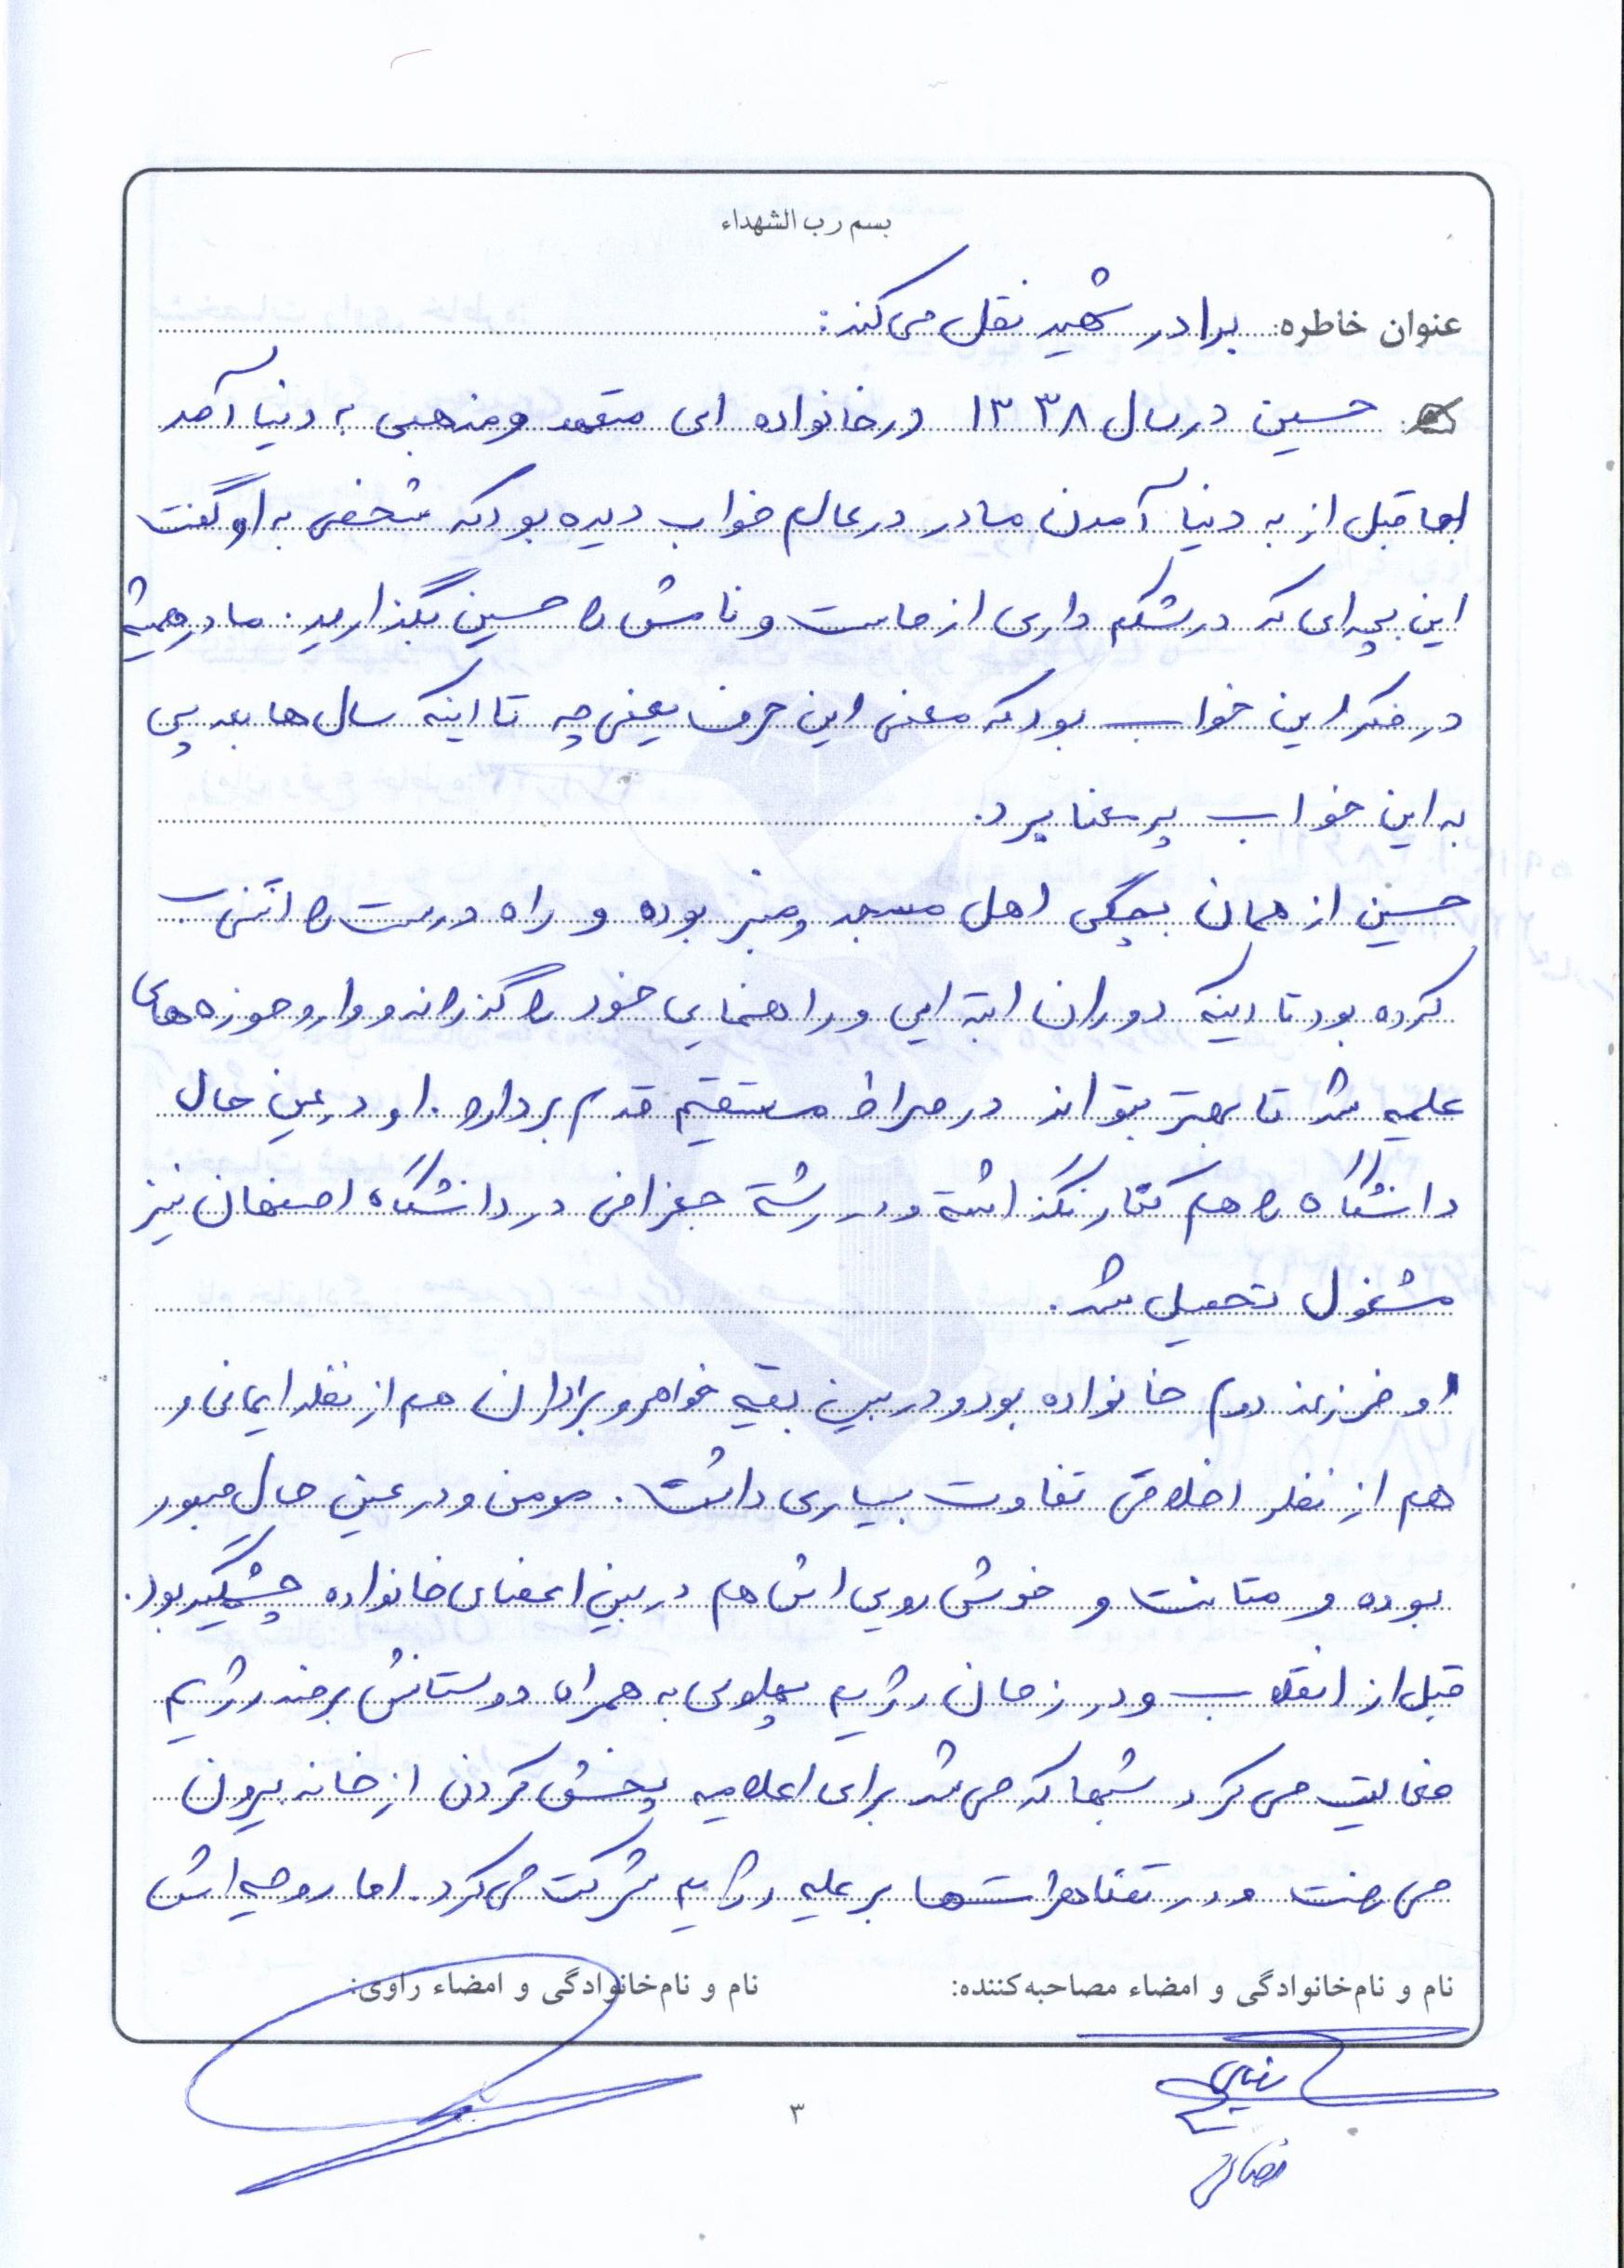 بسم رب الشهداء
عنوان خاطره: برادر شهید نقل می کند:
حسین در سال ۱۳۳۸ در خانواده ای متعهد و مذهبی به دنیا آمد
اما قبل از به دنیا آمدن مادر در عالم خواب دیده بود که شخصی به او گفت
این بچه ای که در شکم داری از ماست و نامش را حسین بگذارید. مادر همیشه
در فکر این خواب بود که معنی این حرف یعنی چه تا اینکه سال ها بعد پی
به این خواب پر معنا برد.
حسین از همان بچگی اهل مسجد و منبر بوده و راه درست را انتخاب
کرده بود تا اینکه دوران ابتدایی و راهنمایی خود را گذرانده و وارد حوزه های
علمیه شد تا بهتر بتواند در صراط مستقیم قدم بردارد. او در عین حال
دانشگاه را هم کنار نگذاشته و در رشته جغرافی در دانشگاه اصفهان نیز
مشغول تحصیل شد.
او فرزند دوم خانواده بود و در بین بقیه خواهر و برادران هم از نظر ایمانی و
هم از نظر اخلاقی تفاوت بسیاری داشت. مومن و در عین حال صبور
بوده و متانت و خوش رویی اش هم در بین اعضای خانواده چشمگیر بود.
قبل از انقلاب و در زمان رژیم پهلوی به همراه دوستانش بر ضد رژیم
فعالیت می کرد شبها که می شد برای اعلامیه پخش کردن از خانه بیرون
می رفت و در تظاهرات ها بر علیه رژیم شرکت می کرد. اما روحیه اش
نام و نام‌خانوادگی و امضاء مصاحبه‌کننده: نام و نام‌خانوادگی و امضاء راوی:
۳